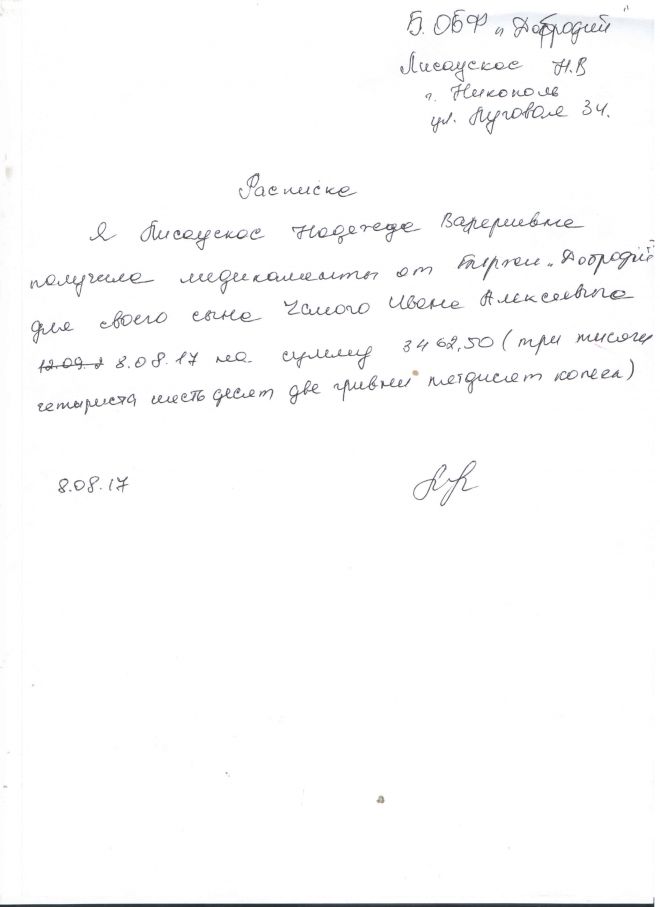 Б. ОБФ "Добродий"
Лисаускас Н.В
г. Никополь
ул. Луговая 34.
Расписка
Я Лисаускас Надежда Валериевна
получила медикаменты от "Добродий"
для своего сына Ивана Алексеевича
12.09. 8.08.17 на сумму 3462,50 (три тисячи
четыриста шестьдесят две гривны петдисят копеек)
8.08.17